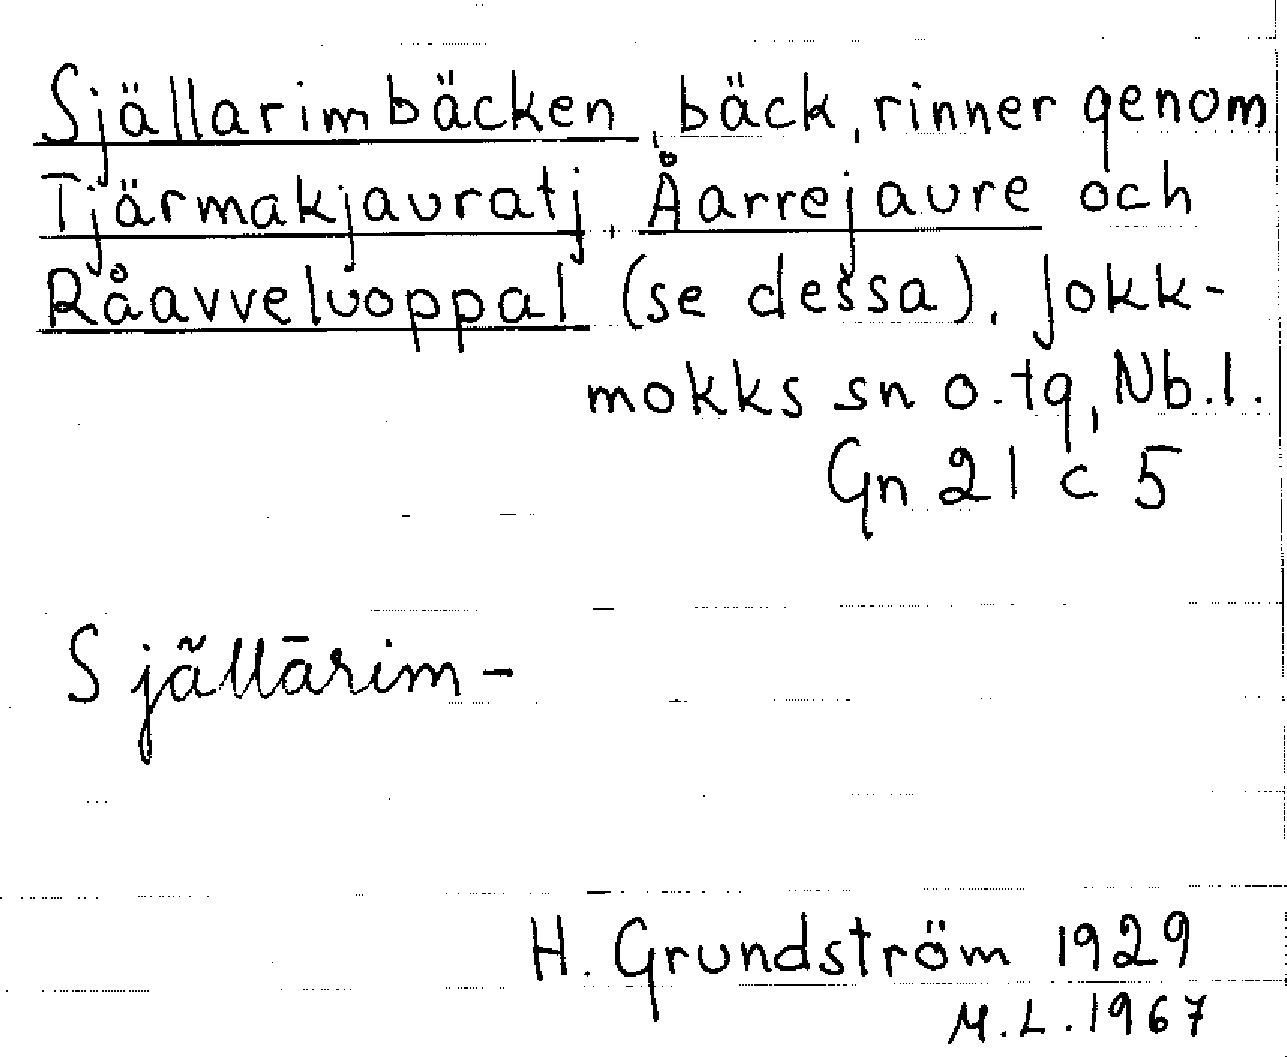 Själlarimbäcken, bäck, rinner genom
Tjärmakjauratj, Åarrejaure och
Råavveluoppal (se dessa). Jokk-
mokks sn o. tg, Nb.l.
Gn 21 c 5
Sjä̃llārim-
H. Grundström 1929
M.L. 1967